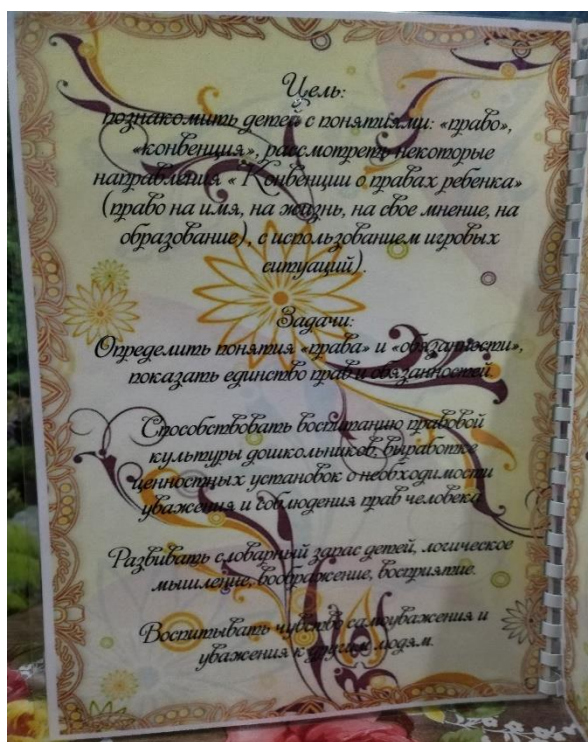 Цель:
познакомить детей с понятиями: «право»,
«конвенция», рассмотреть некоторые
направления « Конвенции о правах ребенка»
(право на имя, на жизнь, на свое мнение, на
образование), с использованием игровых
ситуаций).
Задачи:
Определить понятия «права» и «обязанности»,
показать единство прав и обязанностей.
Способствовать воспитанию правовой
культуры дошкольников, выработке
ценностных установок о необходимости
уважения и соблюдения прав человека
Развивать словарный запас детей, логическое
мышление, воображение, восприятие.
Воспитывать чувство самоуважения и
уважения к другим людям.